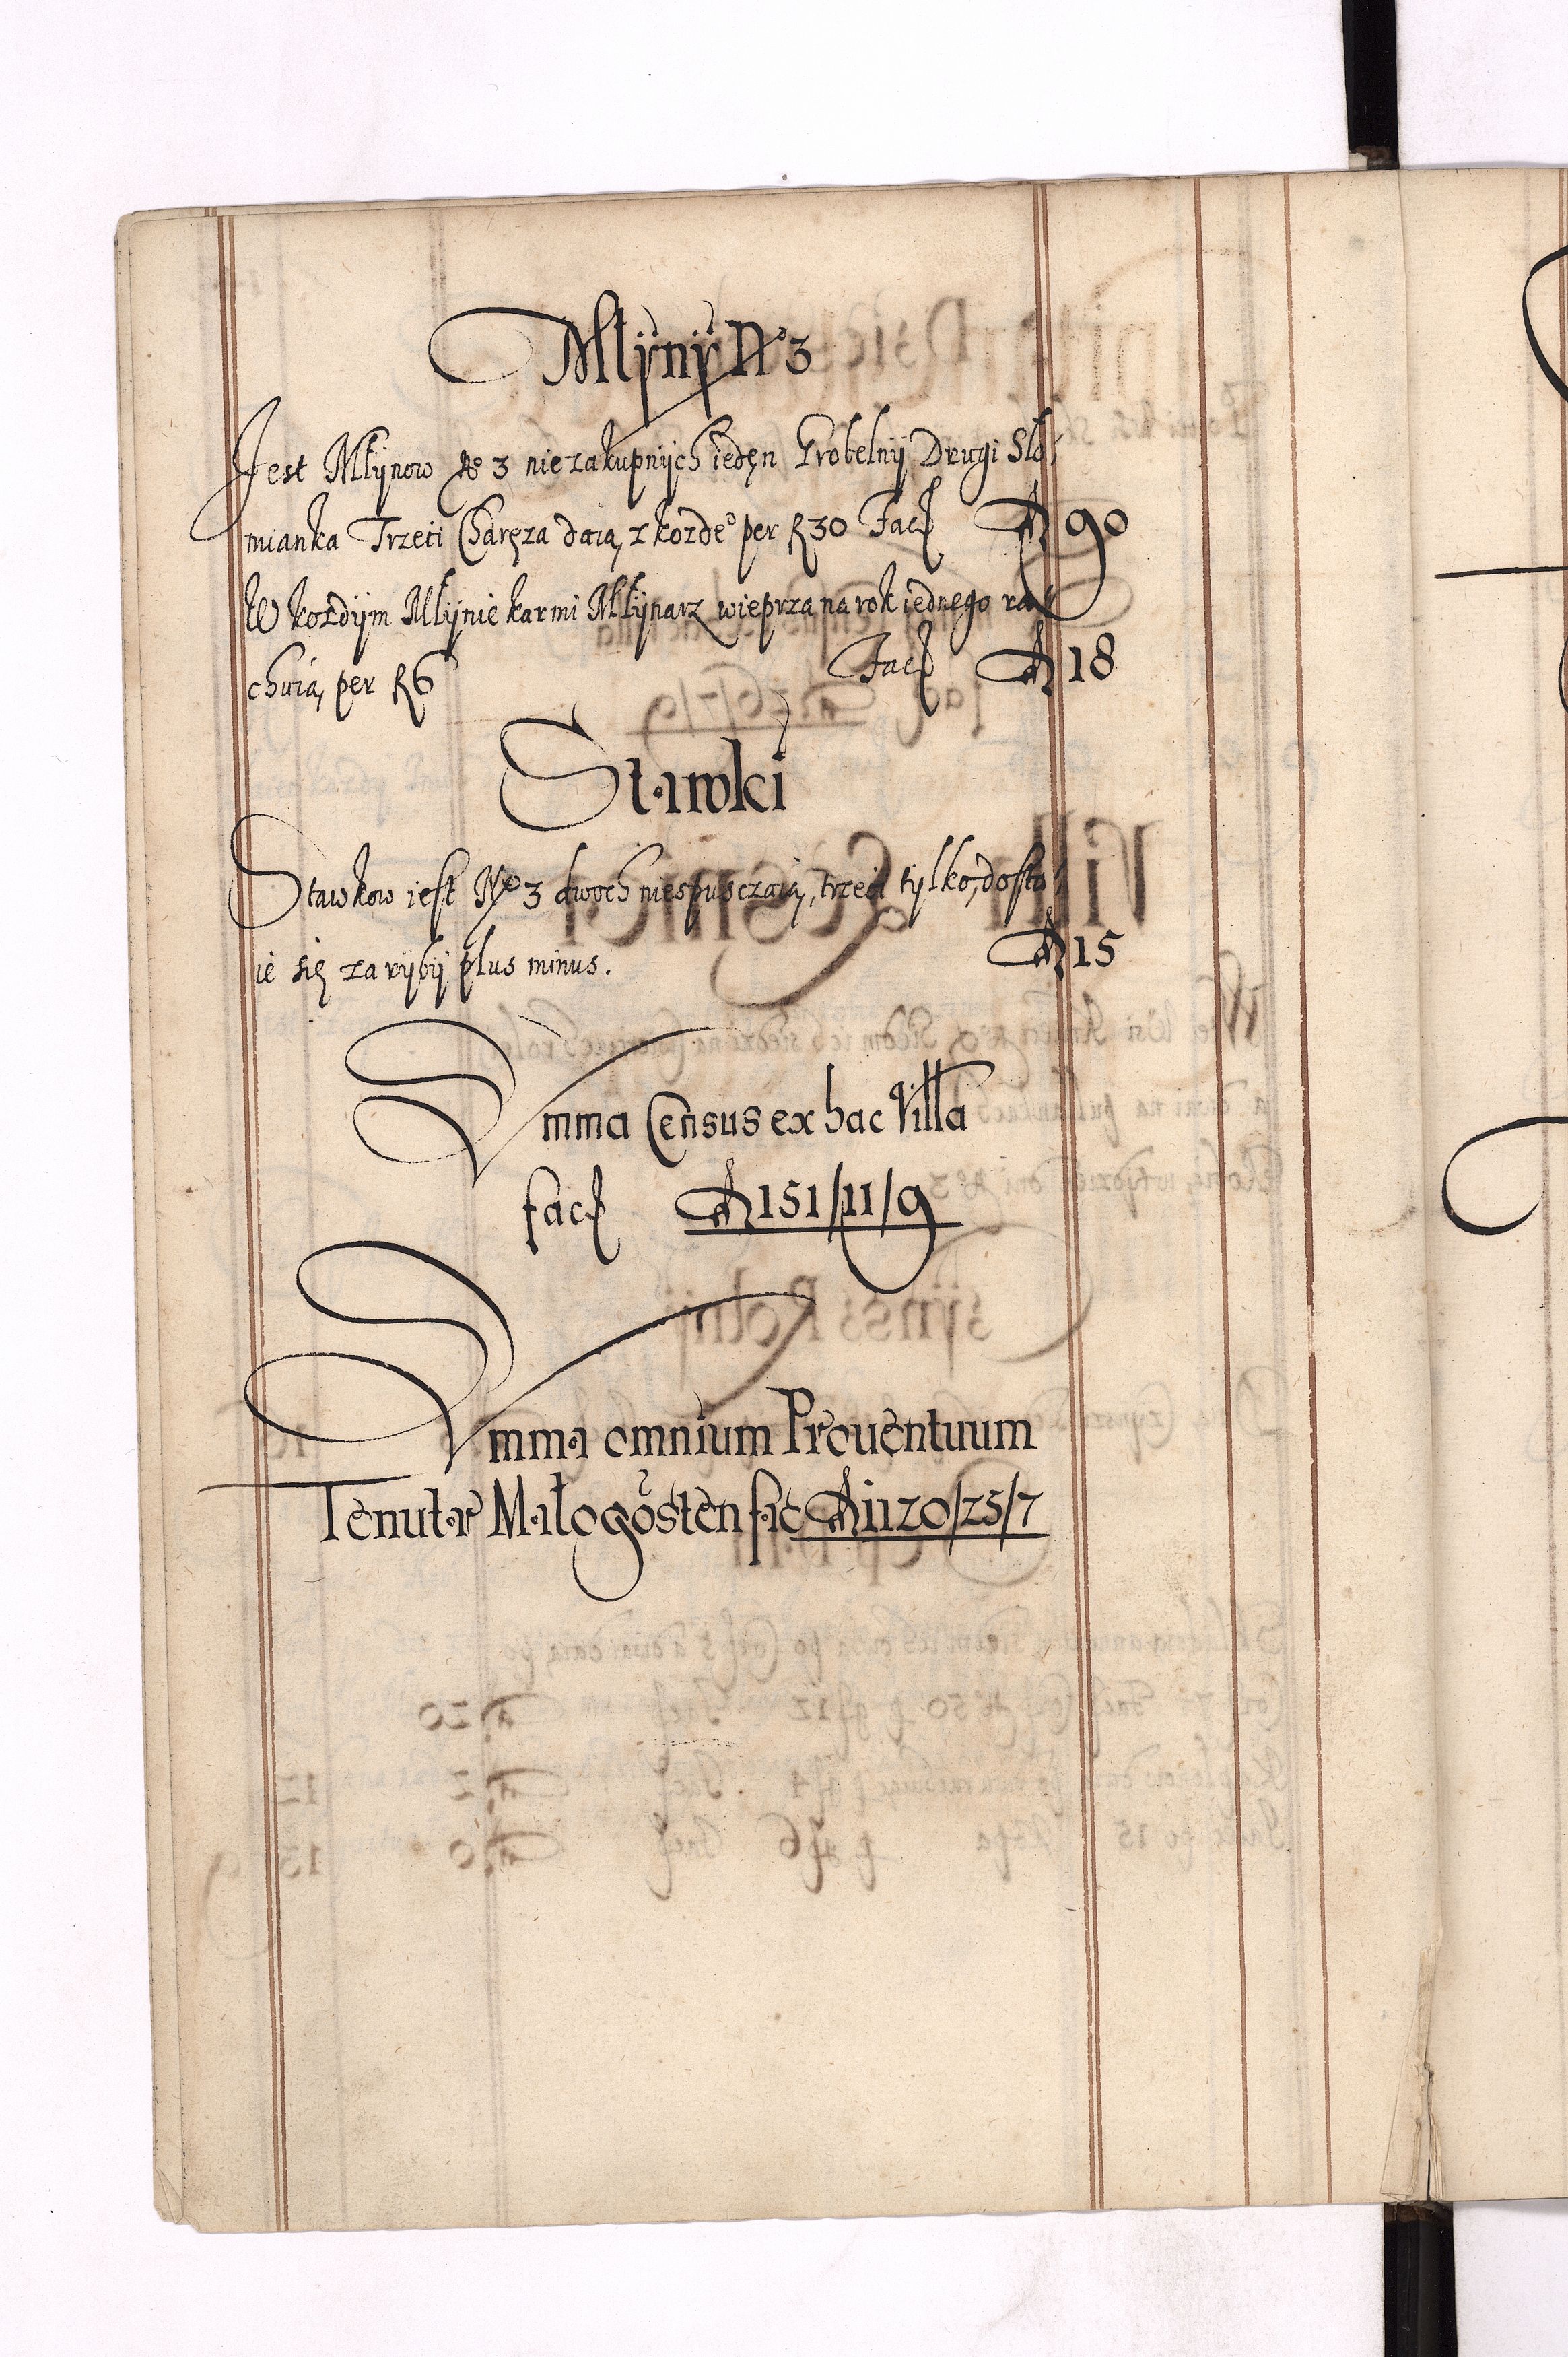 Młÿnÿ No 3
Jest Młÿnow No 3 niezakupnÿch iedęn Grobelnÿ Drugi Sło:
mianka Trzeci Charęza daią, z kożdeo per fl 30 Facit fl 90
W kożdÿm Młÿnie karmi Młÿnarz wieprza na rok iednego ra:
chuią, per fl 6 Facit fl 18
Stawki
Stawkow iest No 3 dwoch niespusczaią, trzeci tÿlko, dosta:
ie się za rÿbÿ plus minus. fl 15
Summa Census ex hac Villa
facit fl 151/11/9
Summa omnium Prouentuum
Tenutæ Małogosten fac fl 1120/25/7